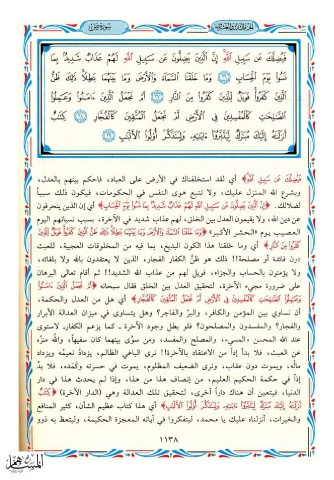 فَيُضِلَّكَ عَن سَبِيلِ اللَّهِ إِنَّ الَّذِينَ يَضِلُّونَ عَن سَبِيلِ اللَّهِ لَهُمْ عَذَابٌ شَدِيدٌ بِمَا
نَسُوا يَوْمَ الْحِسَابِ وَمَا خَلَقْنَا السَّمَاءَ وَالْأَرْضَ وَمَا بَيْنَهُمَا بَاطِلًا ذَٰلِكَ ظَنُّ
الَّذِينَ كَفَرُوا فَوَيْلٌ لِّلَّذِينَ كَفَرُوا مِنَ النَّارِ أَمْ نَجْعَلُ الَّذِينَ ءَامَنُوا وَعَمِلُوا
الصَّالِحَاتِ كَالْمُفْسِدِينَ فِي الْأَرْضِ أَمْ نَجْعَلُ الْمُتَّقِينَ كَالْفُجَّارِ كِتَابٌ
أَنزَلْنَاهُ إِلَيْكَ مُبَارَكٌ لِّيَدَّبَّرُوا ءَايَاتِهِ وَلِيَتَذَكَّرَ أُولُوا الْأَلْبَابِ
فَيُضِلَّكَ عَن سَبِيلِ اللَّهِ﴾ أي لقد استخلفناك في الأرض على العباد، فاحكم بينهم بالعدل،
وبشرع الله المنزل عليك، ولا تتبع هوى النفس في الحكومات، فيكون ذلك سبباً
لضلالك. ﴿إِنَّ الَّذِينَ يَضِلُّونَ عَن سَبِيلِ اللَّهِ لَهُمْ عَذَابٌ شَدِيدٌ بِمَا نَسُوا يَوْمَ الْحِسَابِ﴾ أي إن الذين ينحرفون
عن دين الله، ولا يقيمون العدل بين الخلق، لهم عذاب شديد في الآخرة، بسبب نسيانهم اليوم
العصيب يوم الحشر الأكبر! ﴿وَمَا خَلَقْنَا السَّمَاءَ وَالْأَرْضَ وَمَا بَيْنَهُمَا بَاطِلًا ذَٰلِكَ ظَنُّ الَّذِينَ كَفَرُوا فَوَيْلٌ لِّلَّذِينَ
كَفَرُوا مِنَ النَّارِ﴾ أي وما خلقنا هذا الكون البديع، بما فيه من المخلوقات العجيبة، للعبث
دون فائدة أو مصلحة!! ذلك هو ظنُّ الكفار الفجار، الذين لا يعتقدون بالله ولا بلقائه،
ولا يؤمنون بالحساب والجزاء، فويل لهم من عذاب الله الشديد!! ثم أقام تعالى البرهان
على ضرورة مجيء الآخرة، لتحقيق العدل بين الخلق فقال سبحانه ﴿أَمْ نَجْعَلُ الَّذِينَ ءَامَنُوا
وَعَمِلُوا الصَّالِحَاتِ كَالْمُفْسِدِينَ فِي الْأَرْضِ أَمْ نَجْعَلُ الْمُتَّقِينَ كَالْفُجَّارِ﴾ أي هل من العدل والحكمة،
أن نساوي بين المؤمن والكافر، والبرِّ والفاجر؟ وهل يتساوى في ميزان العدالة الأبرار
والفجار؟ والمفسدون والمصلحون؟ فلو بطل وجود الآخرة ـ كما يزعم الكفار ـ لاستوى
عند الله المحسن والمسيء، والمصلح والمفسد، ومن سوَّى بينهما كان سفيهاً، والله منزَّه
عن العبث، فلا بدَّ إذاً من الاعتقاد بالآخرة!! نرى الباغي الظالم، يزداد نعيمُه ويزداد
مالُه، ويموت دون عقاب، ونرى الضعيف المظلوم، يموت في حسرته وكَمَده، فلا بدَّ
إذاً في حكمة الحكيم العليم، من إنصاف هذا من هذا، وإذا لم يحدث هذا في دار
الدنيا، فيتعين أن هناك داراً أخرى، لتحقيق تلك العدالة وهي (الدار الآخرة) ﴿كِتَابٌ
أَنزَلْنَاهُ إِلَيْكَ مُبَارَكٌ لِّيَدَّبَّرُوا ءَايَاتِهِ وَلِيَتَذَكَّرَ أُولُوا الْأَلْبَابِ﴾ أي هذا كتاب عظيم الشأن، كثير المنافع
والخيرات، أنزلناه عليك يا محمد، ليتفكروا في آياته المعجزة الحكيمة، وليتعظ به ذوو
١١٣٨